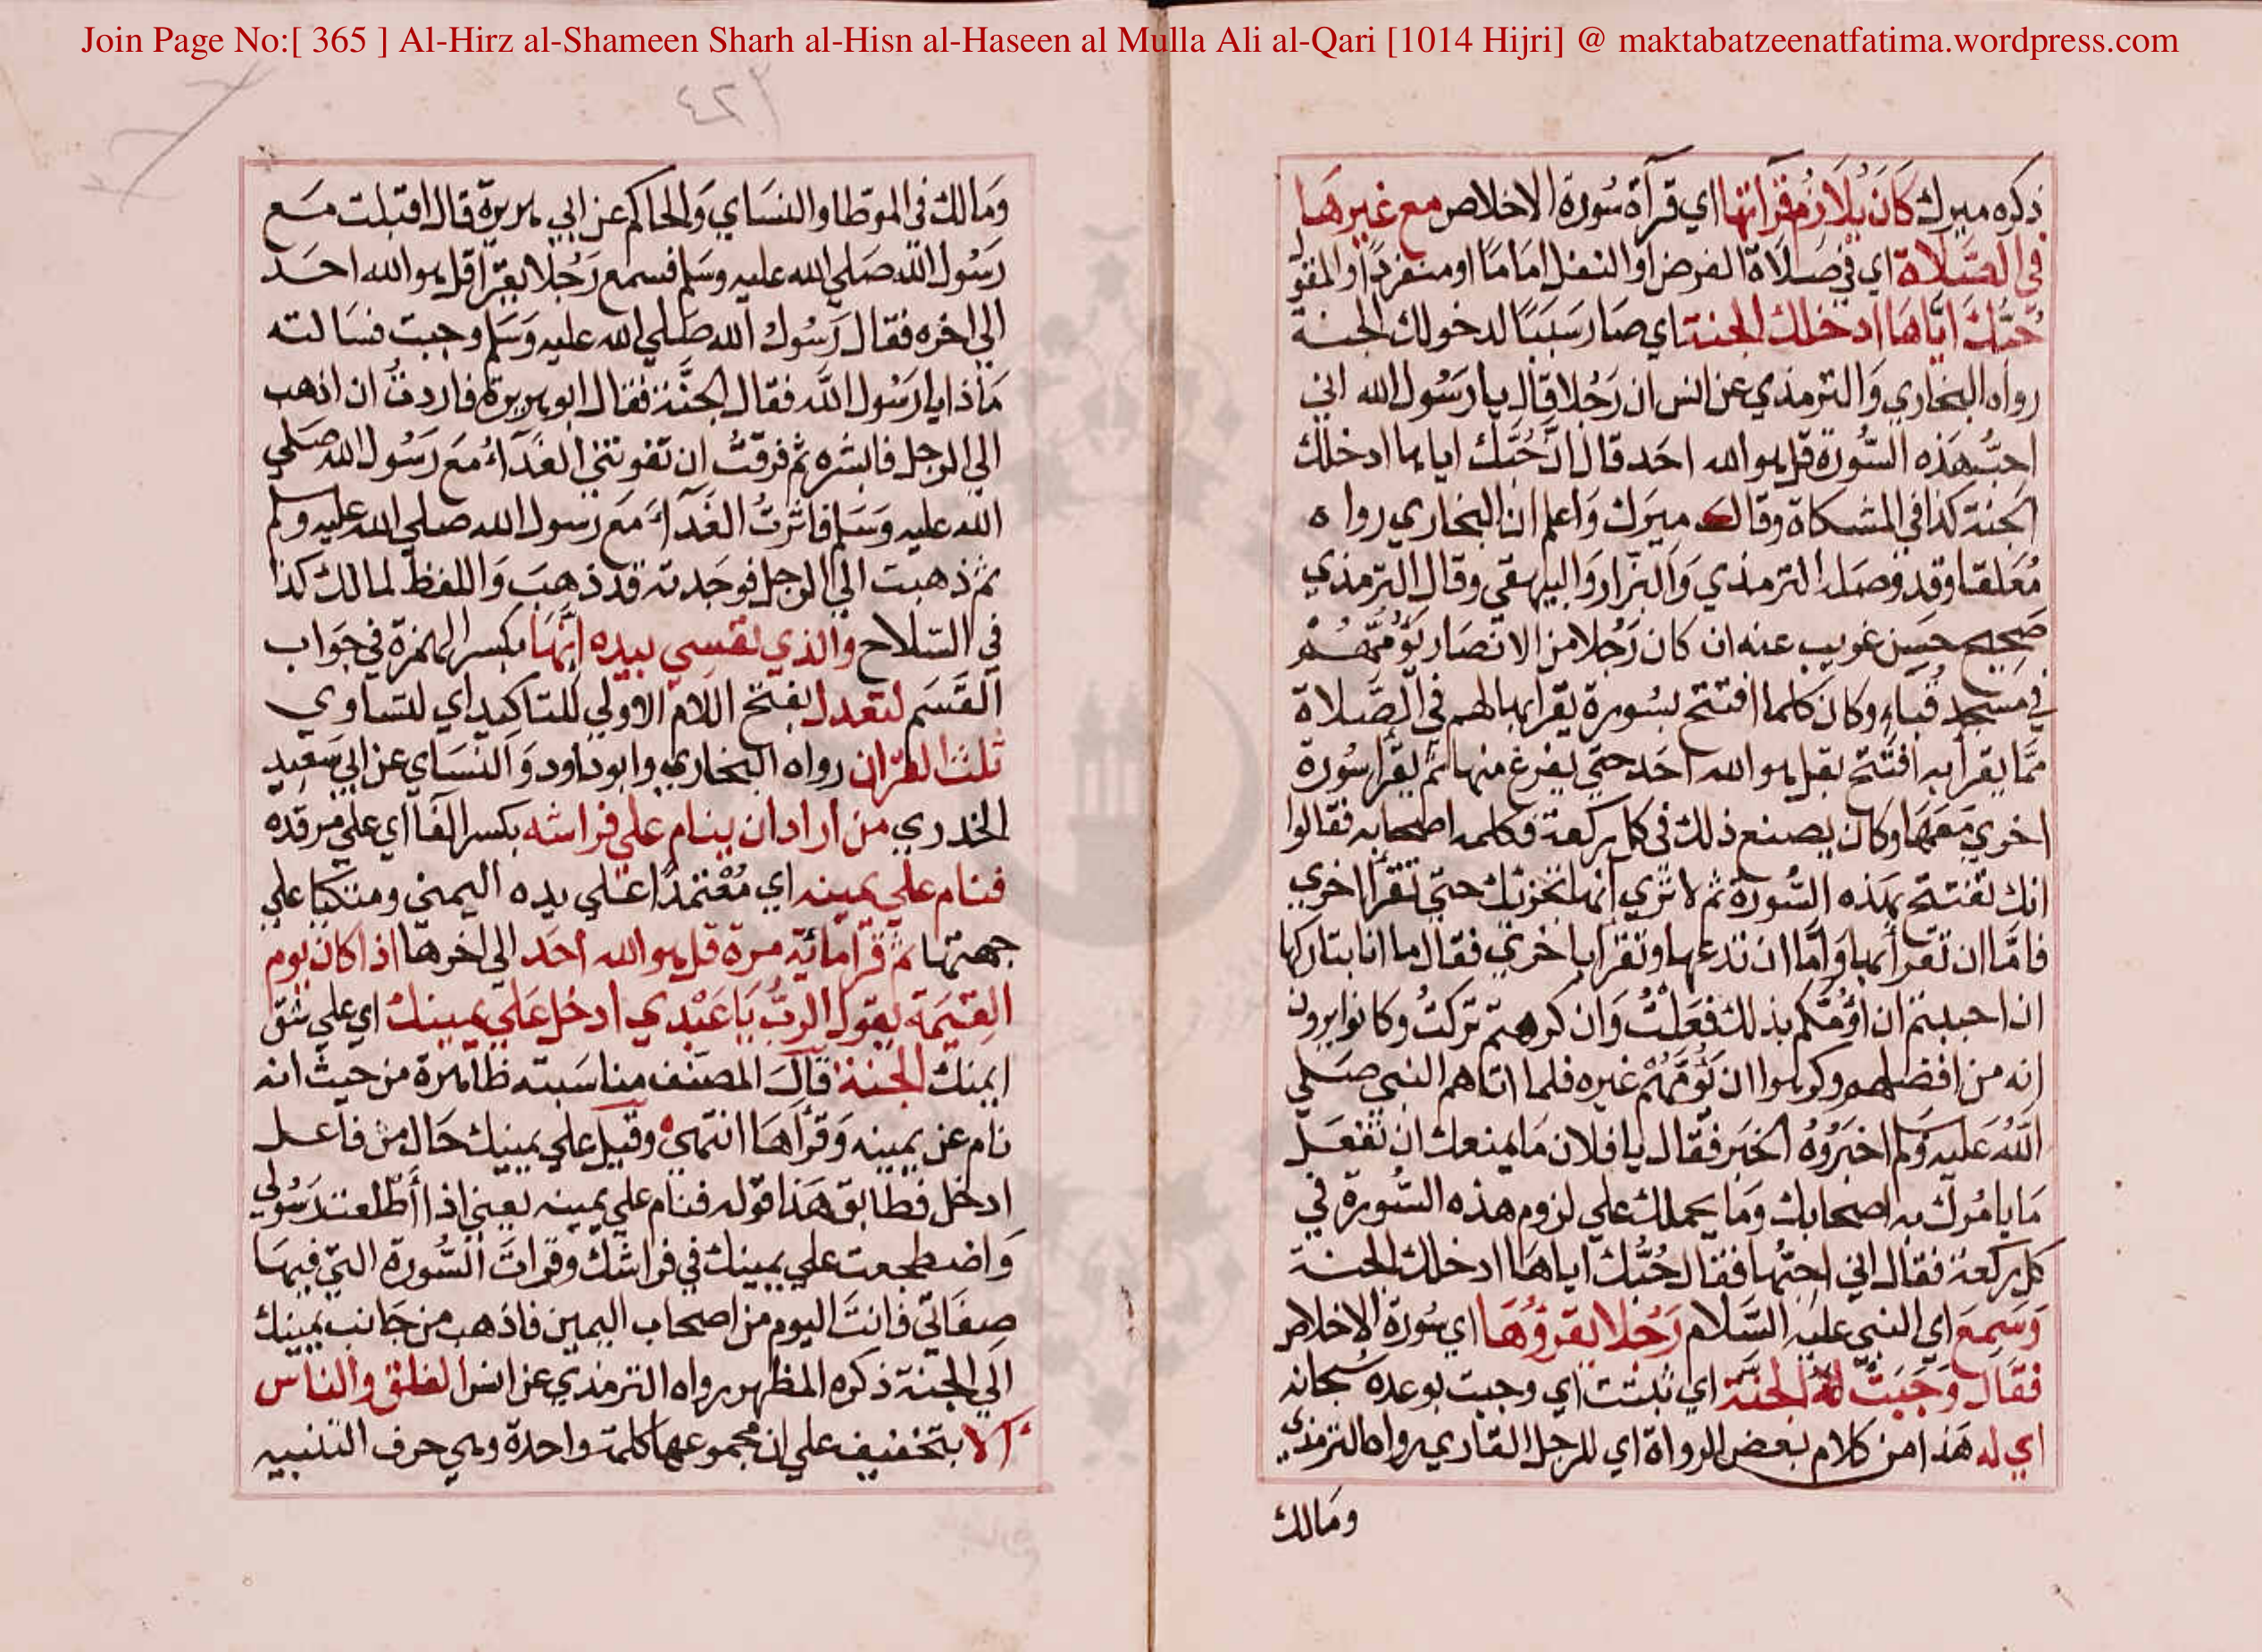 Join Page No:[ 365 ] Al-Hirz al-Shameen Sharh al-Hisn al-Haseen al Mulla Ali al-Qari [1014 Hijri] @ maktabatzeenatfatima.wordpress.com
ذكره ميرك كَانَ يُلَازِمُ قرَآتها اي قرآة سُورة الاخلاص مع غيرهَا
في الصَّلَاة اي في صَلَاة الفرض او النفل امَامًا او منفردًا والمقول
حُبّكَ ايَّاهَا ادخلك الجنة اي صَار سَببًا لدخولك الجنة
رواه البخاري وَالترمذي عن انس ان رَجُلا قال يا رَسُول الله اني
احبُّ هَذه السُّورة قل هو الله احَد قال انّ حُبَّك اياها ادخلك
الجنة كذا في المشكاة وقال ميرَك وَاعلم ان البخاري رواه
مُعَلقا وقد وصَله الترمذي وَالبزار وَالبيهقي وقال الترمذي
صَحيح حَسَن غريب عنه ان كان رَجُلا من الانصَار يَؤمّهُم
في مَسْجد قُبَاء وكان كلما افتتح بسُورة يقرأ بها لهم في الصَّلاة
ممَّا يقرأ به افتَتح بقل هو الله احَد حتى يفرغ منها ثم يقرأ سُورة
اخري مَعَهَا وكان يصنع ذلك في كل ركعة فكلمه اصحابه فقالوا
انك تفتتح بهَذه السُّورة ثم لا تري انها تجزئك حتي تقرأ اخري
فامّا ان تقرأ بها وَامَّا ان تدعها وتقرا باخري فقال ما انا بتاركها
ان احببتم ان اؤمّكم بذلك فعَلتُ وَان كرهتم تركتُ وكانوا يرون
انه من افضلهم وكرهوا ان يَؤمَّهُمْ غيره فلما اتاهم النبي صَلي
اللهُ عَليه وَسَلم اخبَرُوهُ الخبَر فقال يا فلان مَا يمنعك ان تفعَل
مَا يامُرك به اصحابك وَمَا يحملك علي لزوم هذه السُّورة في
كل ركعة فقال اني احبُّها فقال حُبُّك اياهَا ادخلك الجنة
وَسَمِعَ اي النبي عليْه السَّلام رَجُلا يَقرَؤُهَا اي سُورة الاخلاص
فقَال وَجَبَتْ لهُ الجنَّة اي ثبتت اي وجبت بوعده سبحانه
اي له هَذا من كلام بعض الرواة اي للرجل القاري رواه الترمذي
ومَالك
٤٢٢
وَمَالك في الموطا والنسَاي وَالحاكم عن ابي هريرة قال اقبلت مَع
رَسُول الله صَلي الله عليه وسَلم فسمع رَجُلا يقرَا قل هو الله احَد
الي اخره فقال رَسُول الله صَلي الله عليه وَسَلم وجبت فسَالته
مَاذا يا رَسُول الله فقال الجنَّة فقال ابو هريرة فاردتُ ان اذهب
الي الرجل فابشره ثم فرقتُ ان تفوتني الغَدَآءُ مَعَ رَسُول الله صَلي
الله عليه وَسَلم فاثرتُ الغَدآءَ مَع رَسول الله صلي الله عليه وسلم
ثم ذهبت الي الرجل فوجَدته قد ذهبَ وَاللفظ لمالك كذا
في السّلاح والذي نفسي بيده اِنَّهَا بكسر الهمزة في جوَاب
القَسَم لتعدل بفتح اللام الاولي للتاكيد اي لتساوي
ثلث القرآن رواه البخاري وابو داود وَالنسَاي عن ابي سَعيد
الخدري من اراد ان ينام علي فراشه بكسر الفا اي علي مرقده
فنام علي يمينه اي مُعْتمدًا عَلي يده اليمني ومتكئا علي
جهتها ثم قرا مائة مرة قل هو الله احَد الي اخرها اذا كان يوم
القيٰمَة يقول الربُّ يَا عَبْدي ادخل عَلي يمينك اي علي شق
ايمنك الجنة قالَ المصَنف مناسَبته ظاهرة من حيث انه
نام عن يمينه وَقرأهَا انتهى وقيل علي يمينك حَال من فاعل
ادخل فطَابق هَذا قوله فنام علي يمينه يعني اذا اطَلعتَ رَسُولي
وَاضطجعت علي يمينك في فراشك وقرات السُّورة التي فيهَا
صِفَاتي فانتَ اليوم من اصحاب اليمين فاذهب من جَانب يمينك
الي الجنة ذكره المظهر رواه الترمذي عن انس الفلق والناس
الا بتخفيف علي ان مجموعها كلمة واحدة وهي حرف التنبيه